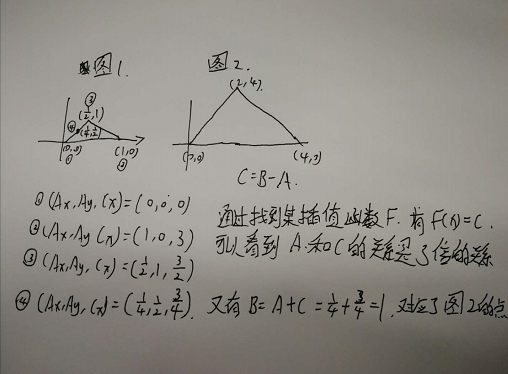 图1.
图2.
③
(½,1)
(2,4)
④
(¼,½)
(0,0)
①
(1,0)
②
(0,0)
(4,0)
C=B-A.
① (Ax,Ay,Cx)=(0,0,0)
② (Ax,Ay,Cx)=(1,0,3)
③ (Ax,Ay,Cx)=(½,1,3/2)
④ (Ax,Ay,Cx)=(¼,½,¾).
通过找到某插值函数F.有F(A)=C.
可以看到A和C的关系是了倍的关系
又有B=A+C=¼+¾=1.对应了图2的点